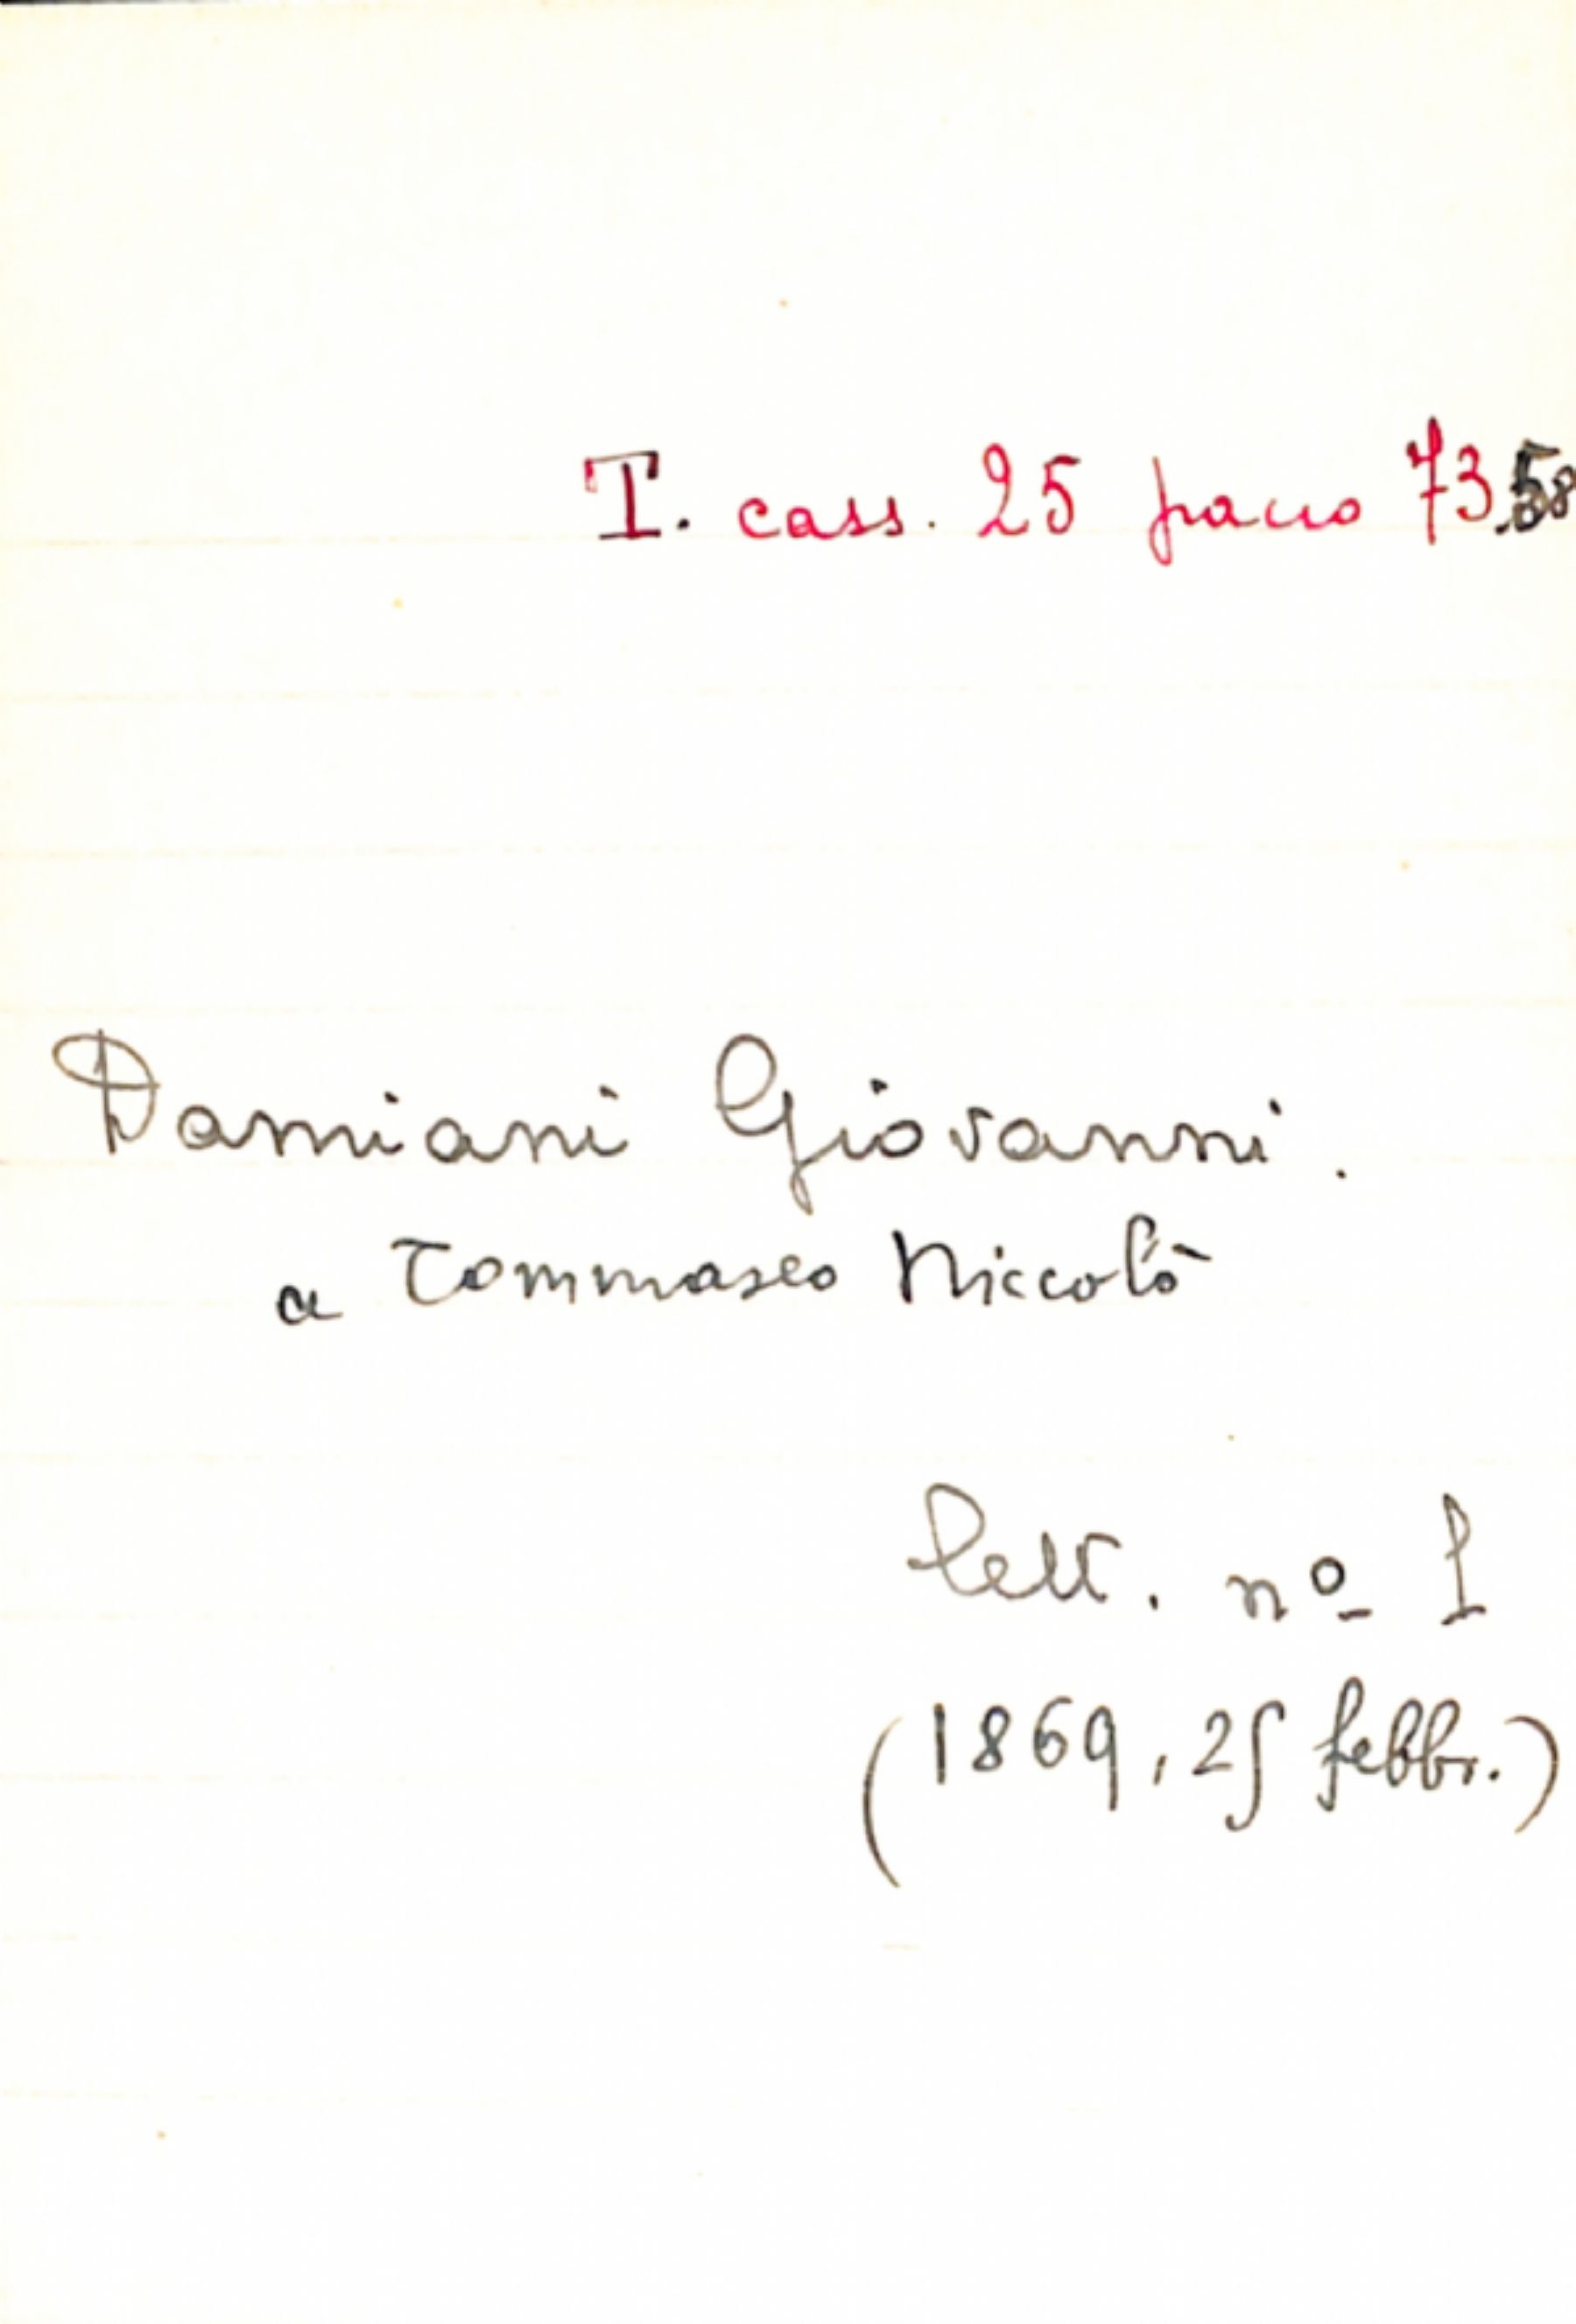 T. cass. 25 pacco 73.58
Damiani Giovanni.
a Tommaseo Niccolò
lett. nº 1
(1869, 25 febbr.)